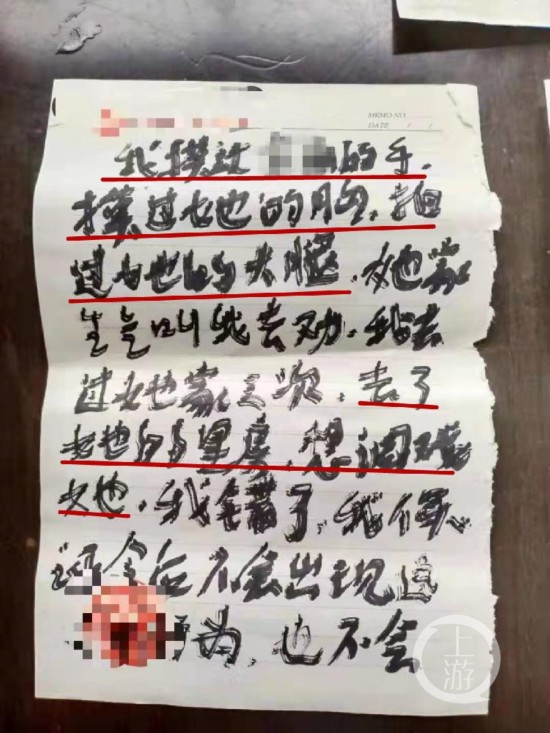 MEMO NO.
DATE / /
我摸过的手,
摸过她的胸,拍
过她的大腿,她家
叫我去劝,我去
过她家三次,去了
她的里房,想调戏
她,我错了,我保
证今后不会出现这
为,也不会
上游